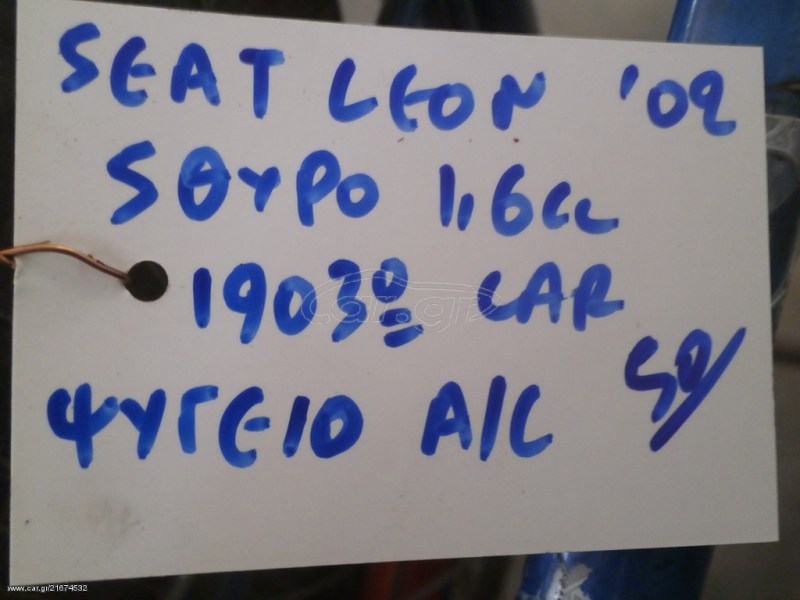 SEAT LEON '02
5ΘΥΡΟ 1,6cc
1903º CAR
ΨΥΓΕΙΟ A/C 50/
car.gr
www.car.gr/21674532